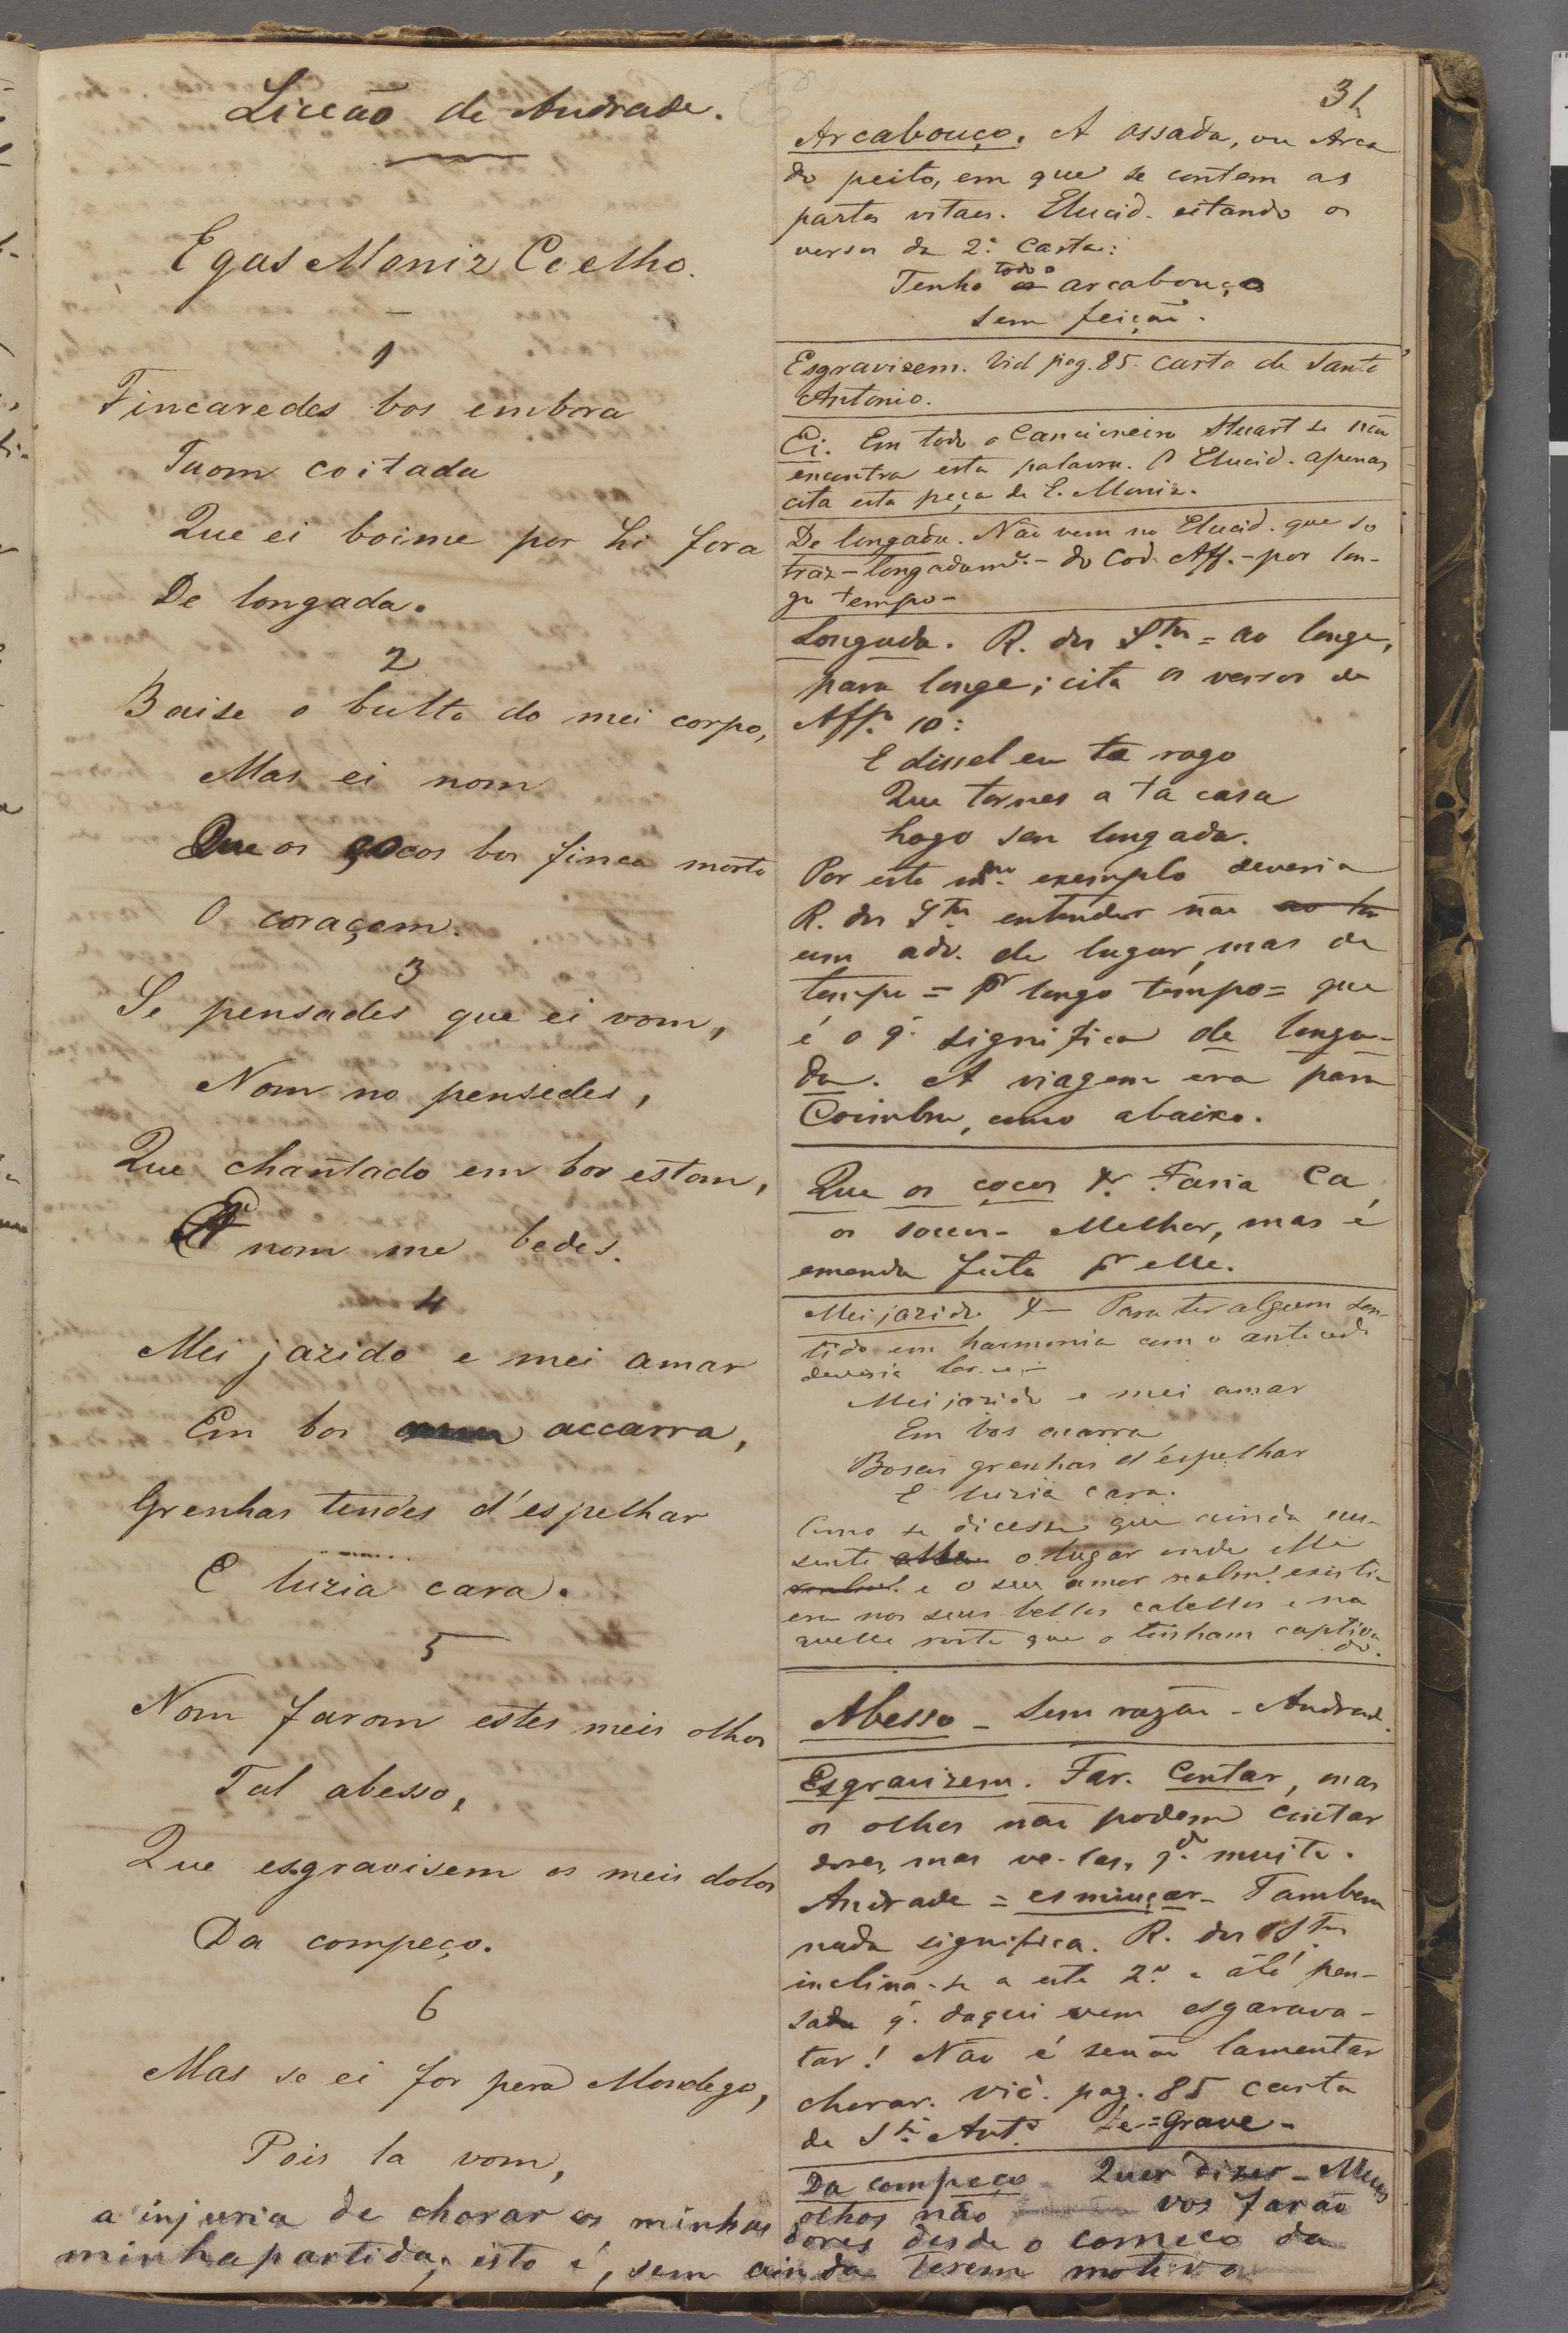 Licção de Andrade.
Egas Moniz Coelho.
1
Fincaredes bos embora
Taom coitada
Que ei boime por hi fora
De longada.
2
Baise o bulto do mei corpo,
Mas ei nom
Que os çocos bos finca morto
O coraçom.
3
Se pensades que ei vom,
Nom no pensedes,
Que chantado em bos estom,
E nom me bedes.
4
Mei jazido e mei amar
Em bos accarra,
Grenhas tendes d'espelhar
E luzia cara.
5
Nom farom estes meis olhos
Tal abesso,
Que esgravisem os meis dolos
Da compeço.
6
Mas se ei for pera Mondego,
Pois la vom,
31
Arcabouço. A ossada, ou Arca
do peito, em que se contem as
partes vitaes. Elucid. citando os
versos da 2.ª Carta:
Tenho todo o arcabouço
Sem feição.
Esgravisem. Vid pag. 85. Carta de Santo
Antonio.
Ei. Em todo o Cancioneiro Stuart se não
encontra esta palavra. O Elucid. apenas
cita esta peça de E. Moniz.
De longada. Não vem no Elucid. que só
traz - longadamte. - do Cod. Aff. - por lon-
go tempo -
Longada. R. dos Stos = ao longe,
para longe; cita os versos de
Aff.º 10:
E dissel eu te rogo
Que tornes a ta casa
Logo sen longada.
Por este mmo. exemplo deveria
R. dos Stos entender não ao lon
um adv. de lugar, mas de
tempo = pr longo tempo = que
é o q. significa de longa-
da. A viagem era para
Coimbra, como abaixo.
Que os çocos &. Faria Ca
os socos - Melhor, mas é
emenda feita pr elle.
Mei jazido & - Para ter algum sen-
tido em harmonia com o antecede
deveria ler-se -
Mei jazido e mei amar
Em bos acarra
Bosas grenhas d'espelhar
E luzia cara.
Como se dicesse que ainda au-
sente o lugar onde elle
e o seu amor realmte. existia
era nos seus bellos cabellos e na
quelle rosto que o tinham captiva
do.
Abesso - Sem razão - Andrade.
Esgravizem. Far. Contar, mas
os olhos não podem contar
dores, mas ve-las, qdo. muito.
Andrade = esmiuçar - Tambem
nada significa. R. dos Stos
inclina-se a este 2.º e até pen-
sa q. daqui vem esgarava-
tar! Não é senão lamentar
chorar. Vid. pag. 85 carta
de Sto. Antº. = Grave -
Da compeço - Quer dizer - Meus
olhos não vos farão
a injuria de chorar as minhas dores desde o começo da
minha partida; isto é, sem ainda terem motivo